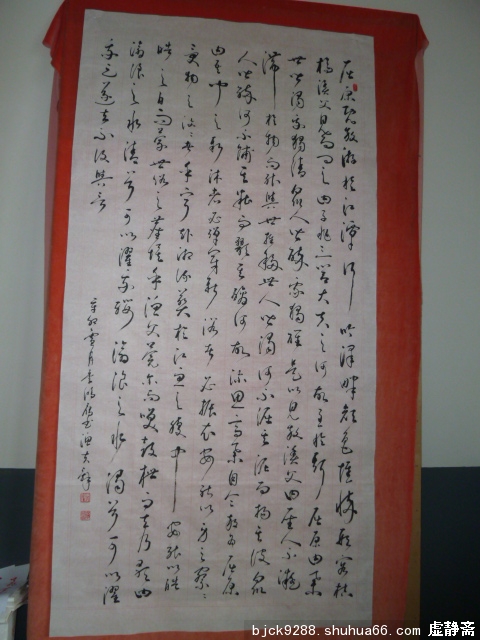 屈原既放游於江潭行吟泽畔颜色憔悴形容枯
槁渔父见而问之曰子非三闾大夫之何故至於斯屈原曰举
世皆浊我独清众人皆醉我独醒是以见放渔父曰圣人不凝
滞於物而能與世推移世人皆濁何不淈其泥而揚其波众
人皆醉何不餔其糟而歠其醨何故深思高举自令放为屈原
曰吾闻之新沐者必弹冠新浴者必振衣安能以身之察察
受物之汶汶者乎宁赴湘流葬於江鱼之腹中安能以皓
皓之白而蒙世俗之塵埃乎渔父莞尔而笑鼓枻而去乃歌曰
滄浪之水清兮可以濯吾缨滄浪之水濁兮可以濯
吾足遂去不復與言
辛卯雪月李书渔父辞
bjck9288.shuhua66.com 虚静斋